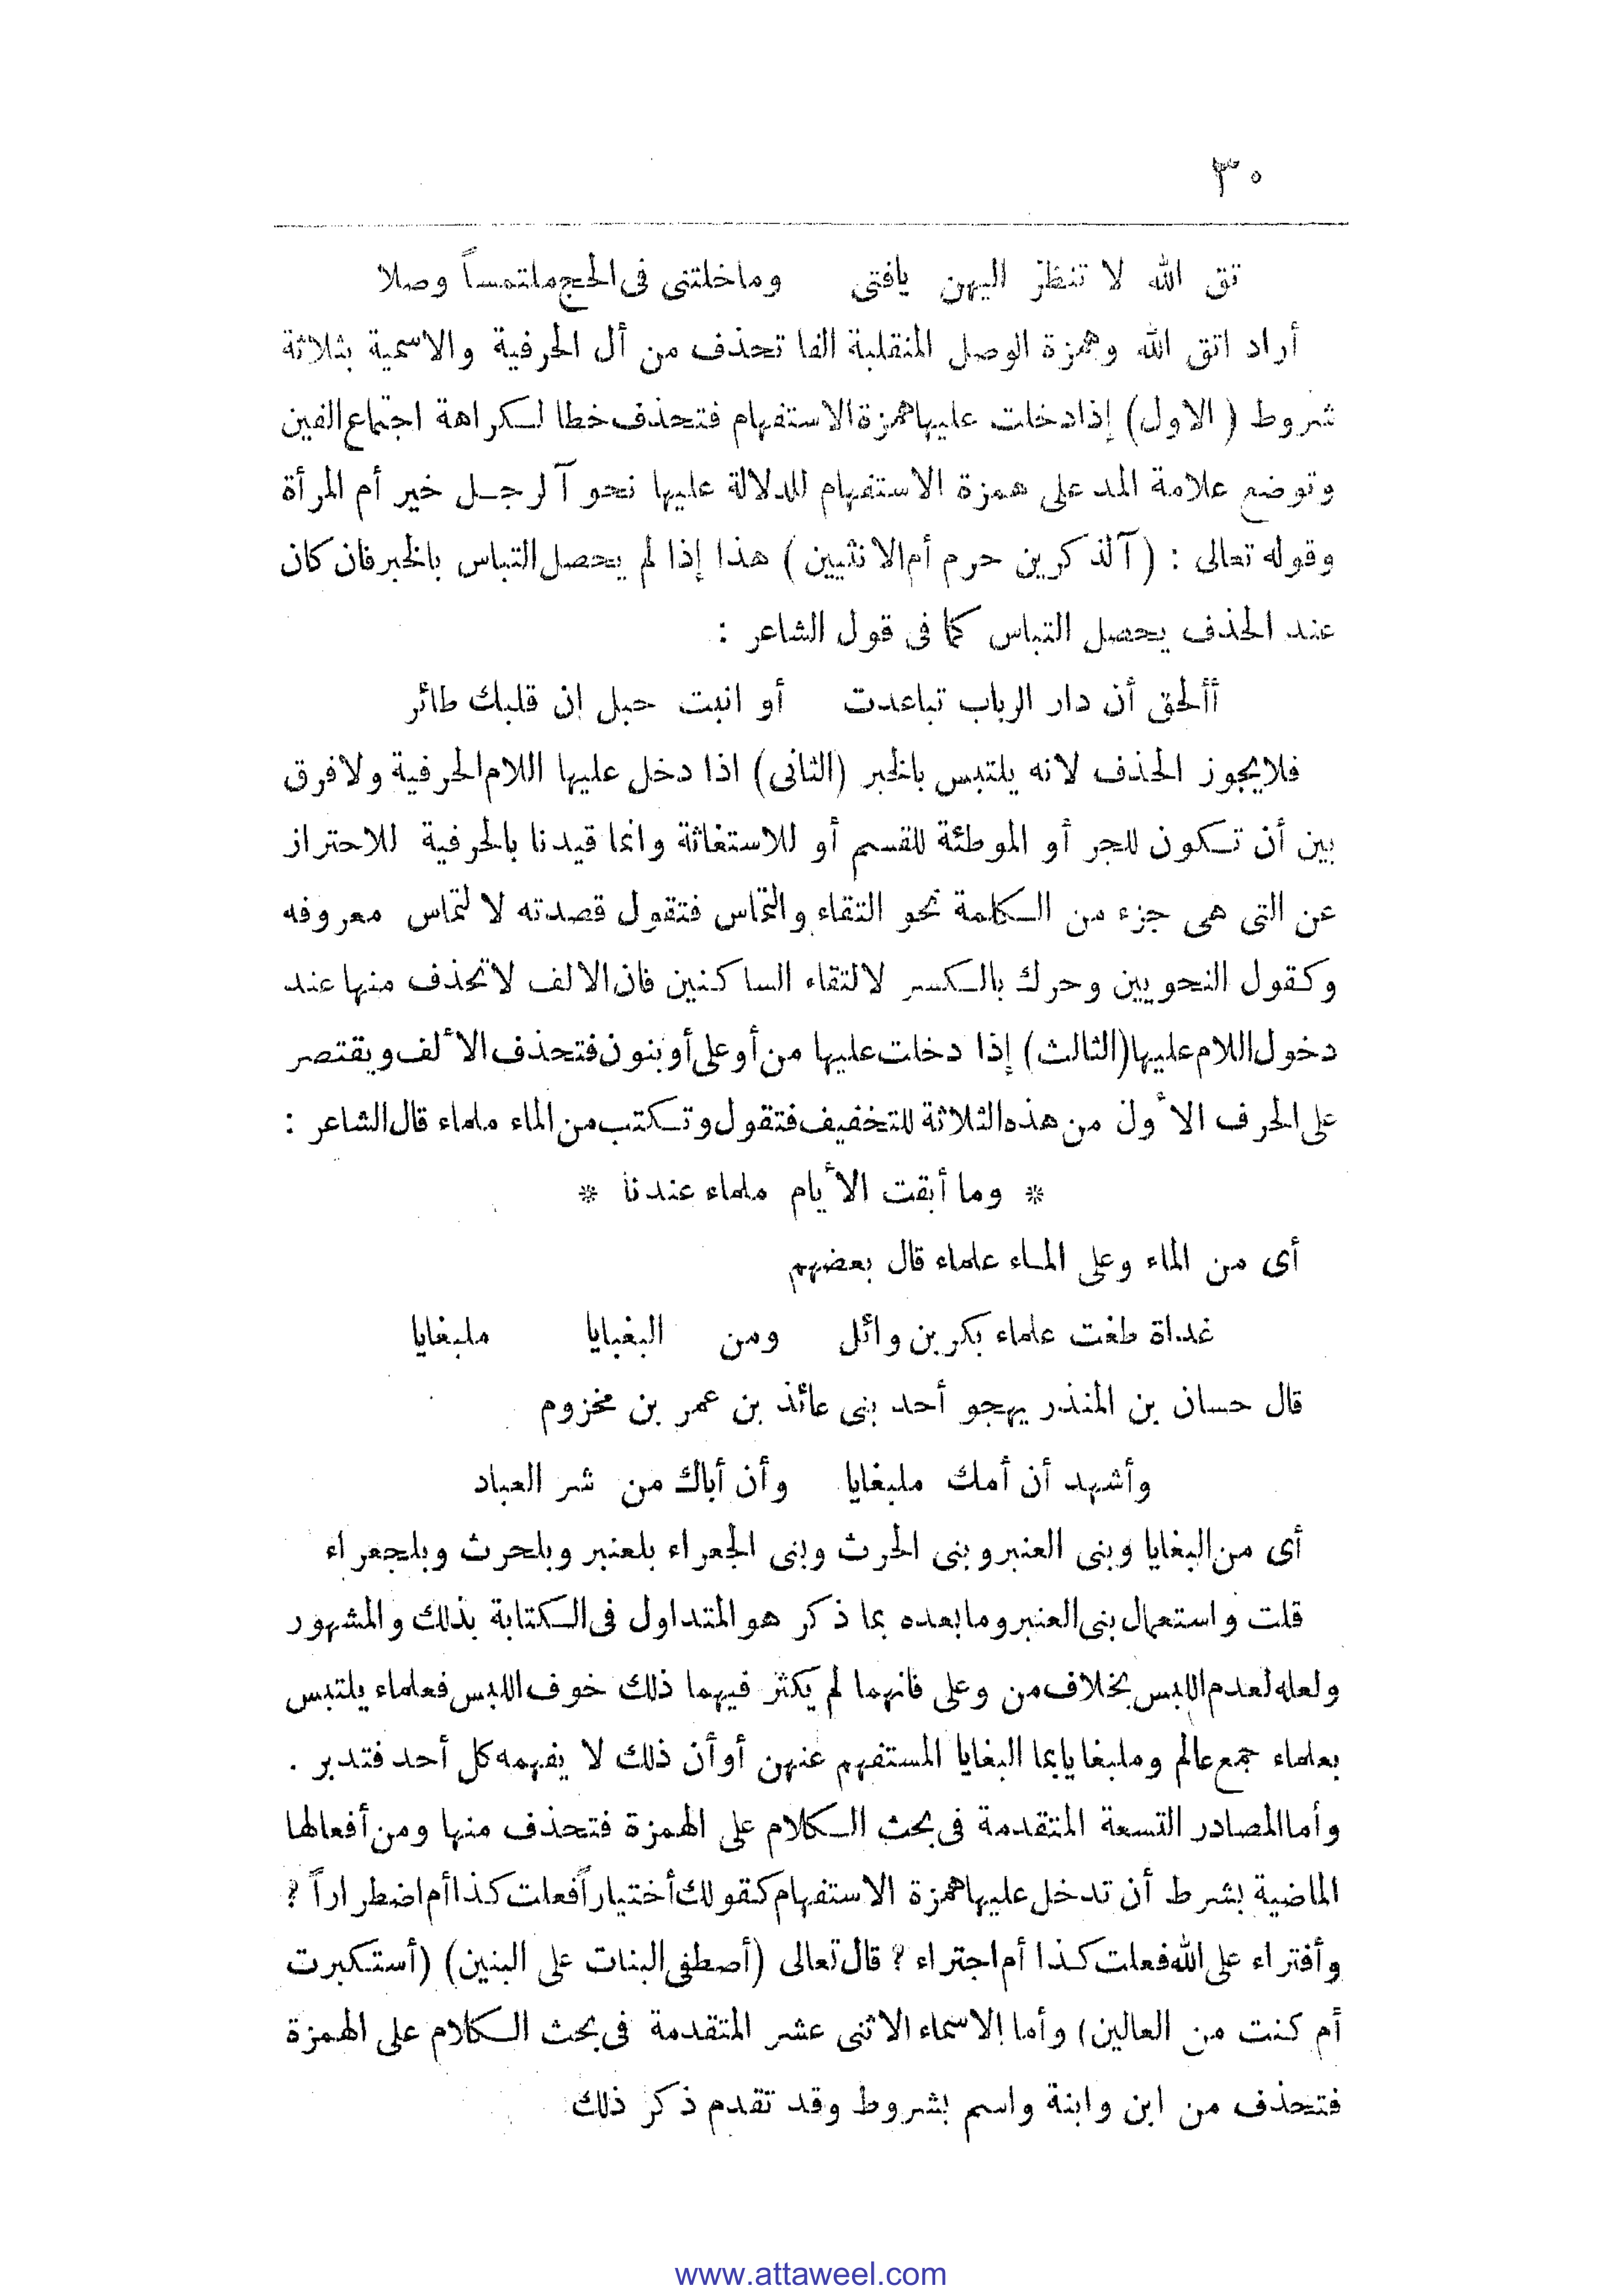 ٣٠
تق الله لا تنظر اليهن يافتى وماخلتنى فى الحج ملتمساً وصلا
أراد اتق الله وهمزة الوصل المنقلبة الفا تحذف من أل الحرفية والاسمية بثلاثة
شروط ( الاول) إذا دخلت عليها همزة الاستفهام فتحذف خطا لكراهة اجتماع الفين
وتوضع علامة المد على همزة الاستفهام للدلالة عليها نحو آلرجل خير أم المرأة
وقوله تعالى : ( آلذكرين حرم أم الانثيين ) هذا إذا لم يحصل التباس بالخبر فان كان
عند الحذف يحصل التباس كما فى قول الشاعر :
أألحق أن دار الرباب تباعدت أو انبت حبل إن قلبك طائر
فلا يجوز الحذف لانه يلتبس بالخبر (الثانى) اذا دخل عليها اللام الحرفية ولا فرق
بين أن تكون للجر أو الموطئة للقسم أو للاستغاثة وانما قيدنا بالحرفية للاحتراز
عن التى هى جزء من الكلمة نحو التقاء والتماس فتقول قصدته لا لتماس معروفه
وكقول النحويين وحرك بالكسر لالتقاء الساكنين فان الالف لا تحذف منها عند
دخول اللام عليها (الثالث) إذا دخلت عليها من أو على أو بنون فتحذف الألف ويقتصر
على الحرف الأول من هذه الثلاثة للتخفيف فتقول وتكتب من الماء ملماء قال الشاعر :
* وما أبقت الأيام ملماء عندنا *
أى من الماء وعلى الماء علماء قال بعضهم
غداة طغت علماء بكر بن وائل ومن البغايا ملبغايا
قال حسان بن المنذر يهجو أحد بنى عائذ بن عمر بن مخزوم
وأشهد أن أمك ملبغايا وأن أباك من شر العباد
أى من البغايا وبنى العنبر وبنى الحرث وبنى الجعراء بلعنبر وبلحرث وبلجعراء
قلت واستعمال بنى العنبر وما بعده بما ذكر هو المتداول فى الكتابة بذلك والمشهور
ولعله لعدم اللبس بخلاف من وعلى فانهما لم يكثر فيهما ذلك خوف اللبس فعلماء يلتبس
بعلماء جمع عالم وملبغايا بما البغايا المستفهم عنهن أو أن ذلك لا يفهمه كل أحد فتدبر .
وأما المصادر التسعة المتقدمة فى بحث الكلام على الهمزة فتحذف منها ومن أفعالها
الماضية بشرط أن تدخل عليها همزة الاستفهام كقولك أختياراً فعلت كذا أم اضطراراً ؟
وأفتراء على الله فعلت كذا أم اجتراء ؟ قال تعالى (أصطفى البنات على البنين) (أستكبرت
أم كنت من العالين) وأما الاسماء الاثنى عشر المتقدمة فى بحث الكلام على الهمزة
فتحذف من ابن وابنة واسم بشروط وقد تقدم ذكر ذلك
www.attaweel.com